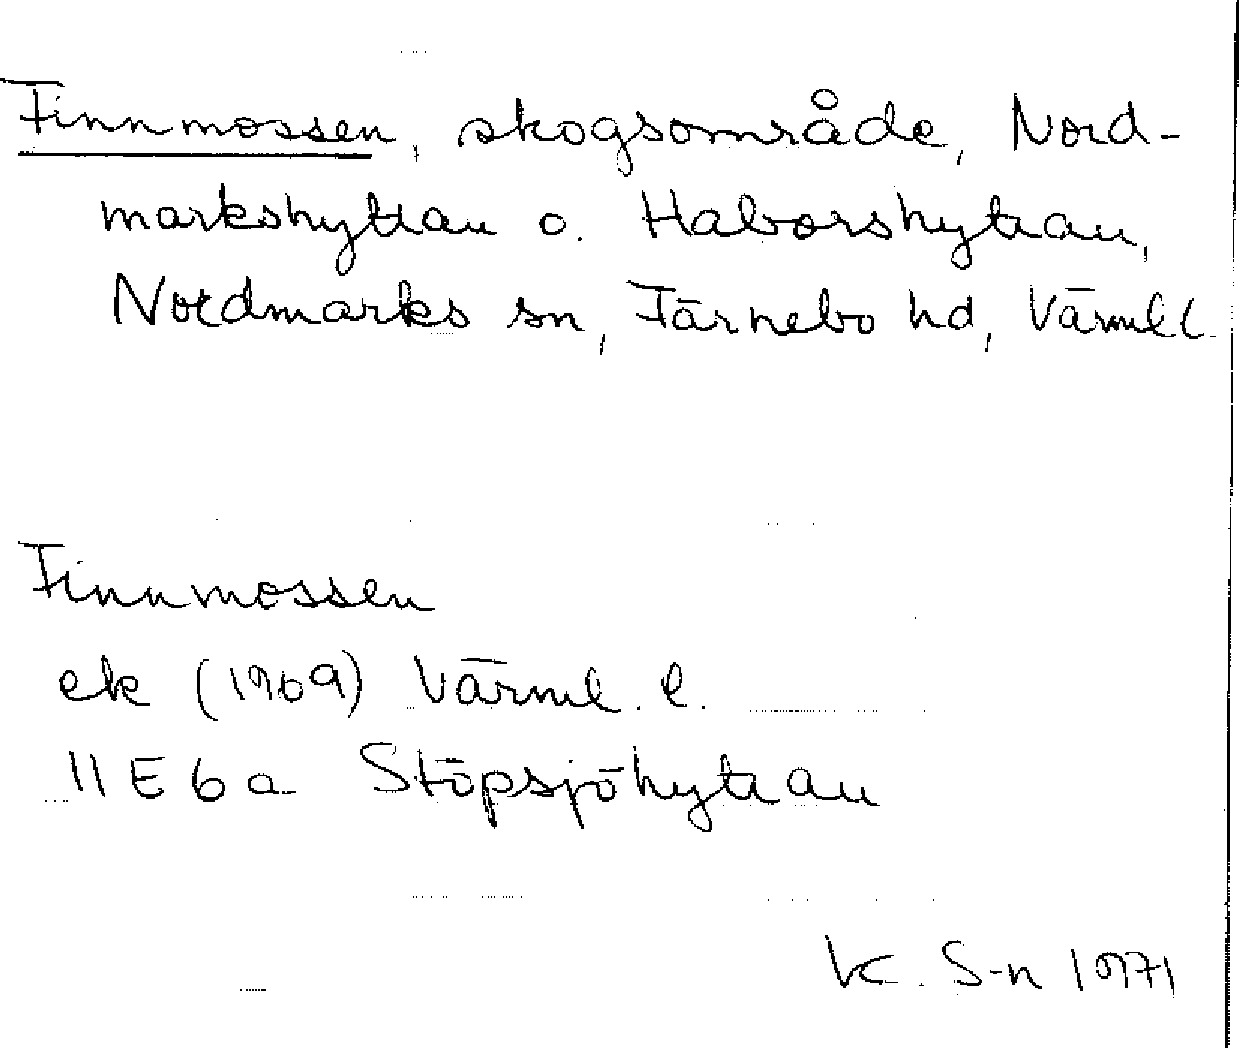 Finnmossen, skogsområde, Nord-
markshyttan o. Haborshyttan,
Nordmarks sn, Färnebo hd, Värml l.
Finnmossen
ek (1969) Värml. l.
11E 6a Stöpsjöhyttan
K. S-n 1971